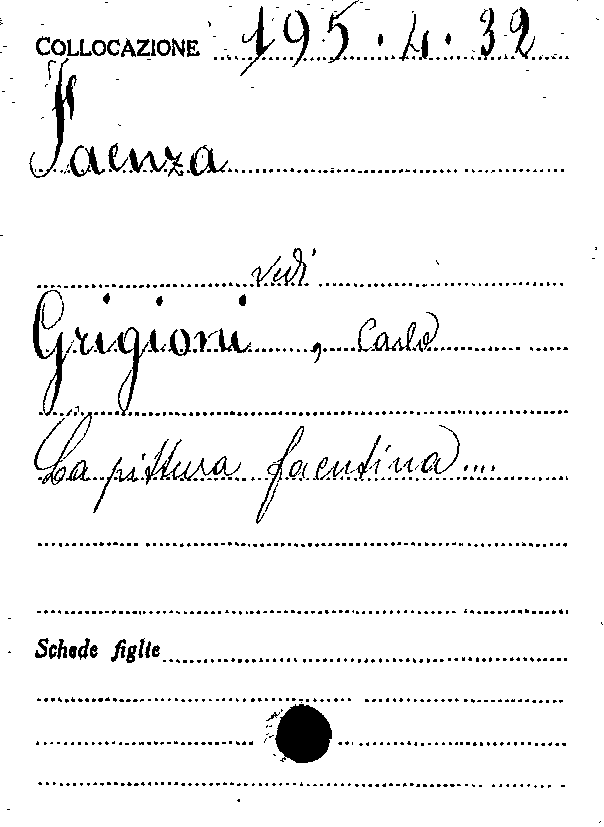 COLLOCAZIONE 195.4.32
Faenza
vedi
Grigioni, Carlo
La pittura faentina....
Schede figlie